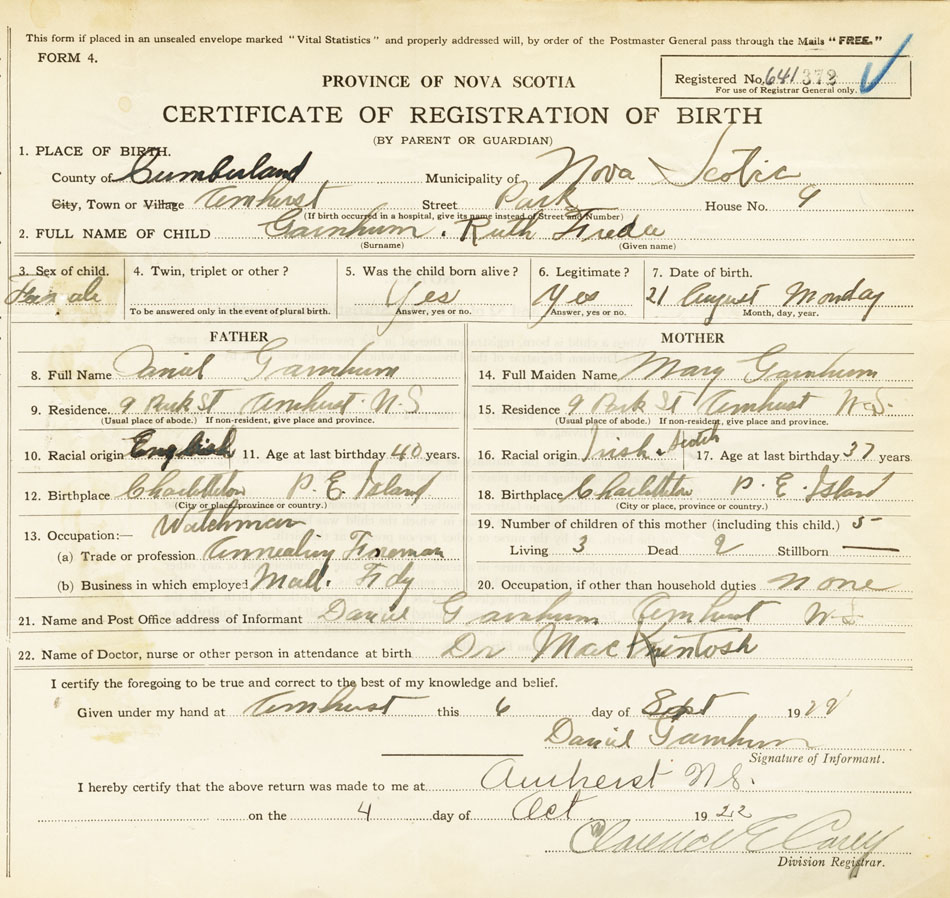 This form if placed in an unsealed envelope marked "Vital Statistics" and properly addressed will, by order of the Postmaster General pass through the Mails "FREE."
FORM 4.
Registered No. 641 372
For use of Registrar General only.
PROVINCE OF NOVA SCOTIA
CERTIFICATE OF REGISTRATION OF BIRTH
(BY PARENT OR GUARDIAN)
1. PLACE OF BIRTH.
County of Cumberland Municipality of Nova Scotia
City, Town or Village Amhirst Street Park House No. 9
(If birth occurred in a hospital, give its name instead of Street and Number)
2. FULL NAME OF CHILD Garnhum. Ruth Fredie
(Surname) (Given name)
3. Sex of child. 4. Twin, triplet or other? 5. Was the child born alive? 6. Legitimate? 7. Date of birth.
Female Yes Yes 21 August Monday
To be answered only in the event of plural birth. Answer, yes or no. Answer, yes or no. Month, day, year.
FATHER MOTHER
8. Full Name Daniel Garnhum 14. Full Maiden Name Mary Garnhum
9. Residence. 9 Park St Amhurst N.S 15. Residence 9 Park St Amhurst N.S.
(Usual place of abode.) If non-resident, give place and province. (Usual place of abode.) If non-resident, give place and province.
10. Racial origin English 11. Age at last birthday 40 years. 16. Racial origin Irish & Scotch 17. Age at last birthday 37 years
12. Birthplace Charlotteton P. E. Island 18. Birthplace Charlotteton P. E. Island
(City or place, province or country.) (City or place, province or country.)
13. Occupation:— Watchman 19. Number of children of this mother (including this child.) 5
(a) Trade or profession Annealing Fireman Living 3 Dead 2 Stillborn —
(b) Business in which employed Mall. Fdy 20. Occupation, if other than household duties none
21. Name and Post Office address of Informant Daniel Garnhum Amhurst N.S
22. Name of Doctor, nurse or other person in attendance at birth Dr MacKintosh
I certify the foregoing to be true and correct to the best of my knowledge and belief.
Given under my hand at Amhurst this 6 day of Sept 1922
Daniel Garnhum
Signature of Informant.
I hereby certify that the above return was made to me at Amherst N.S.
on the 4 day of Oct 1922
Clarence E Carey
Division Registrar.